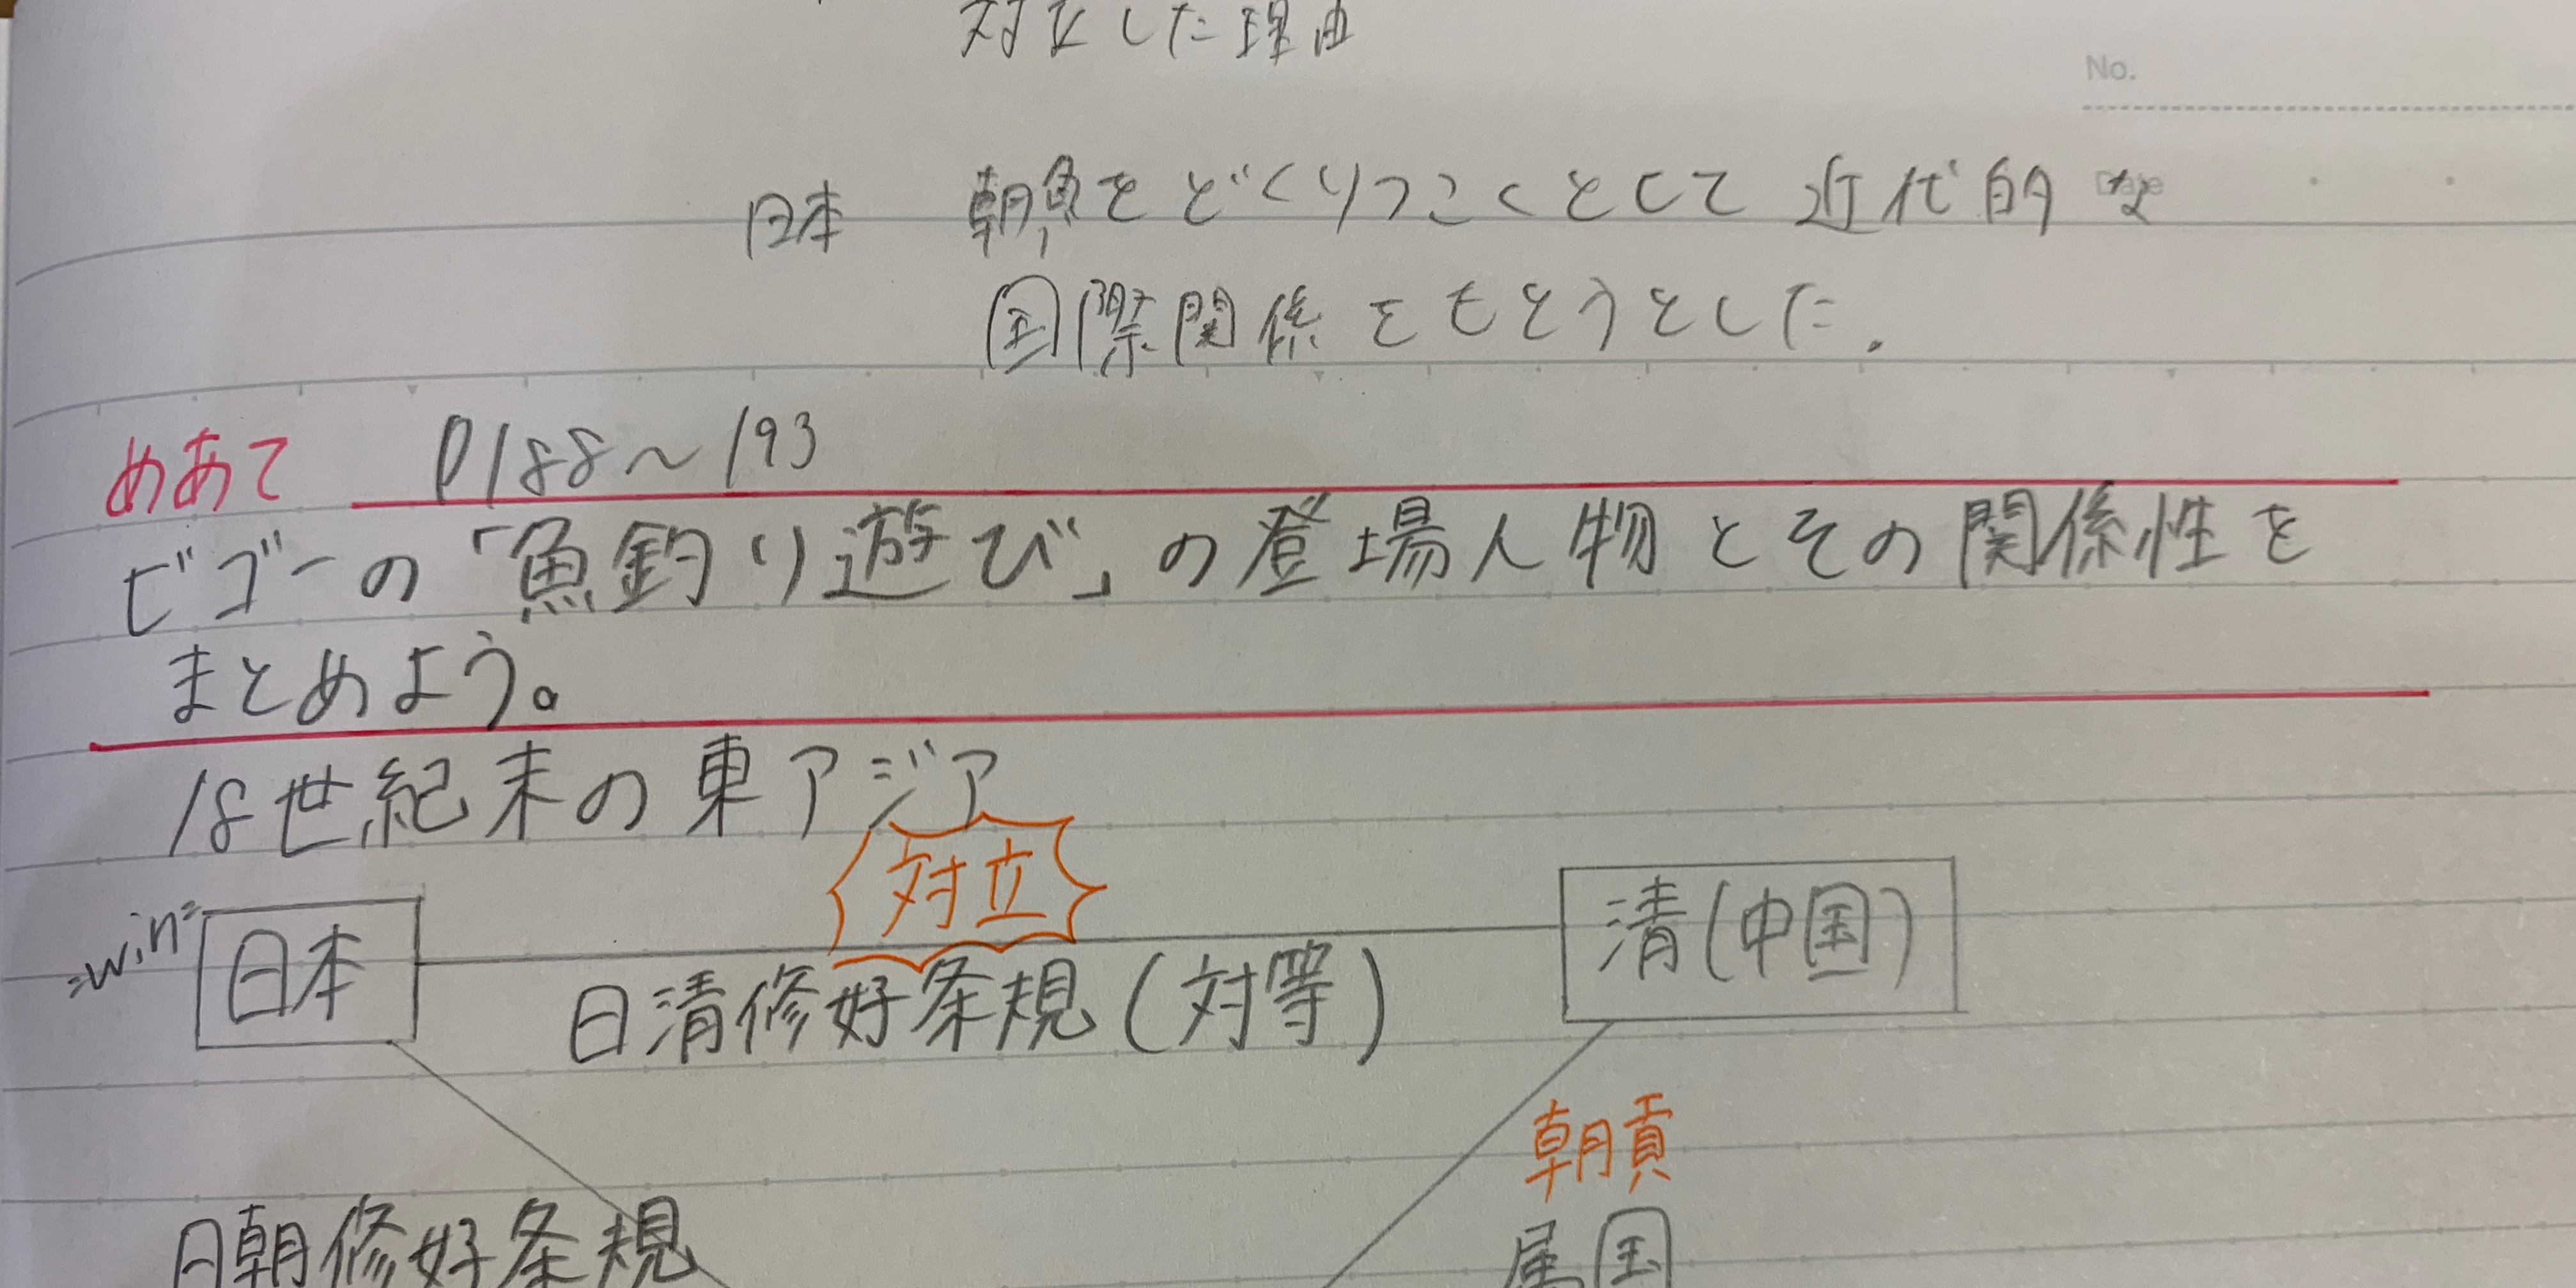 対立した理由
No.
日本 朝鮮をどくりつこくとして近代的な
Date
国際関係をもとうとした.
めあて P188〜193
ビゴーの「魚釣り遊び」の登場人物とその関係性を
まとめよう。
18世紀末の東アジア
対立
=win= 日本 清(中国)
日清修好条規(対等)
朝貢
日朝修好条規 属国